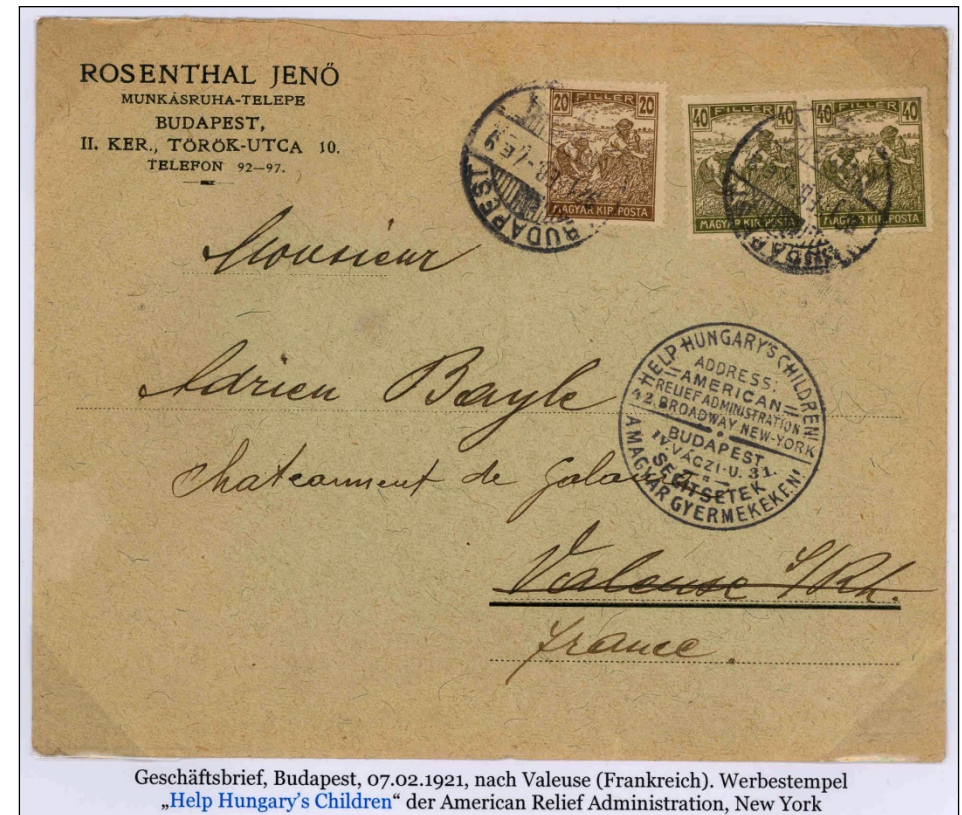 ROSENTHAL JENŐ
MUNKÁSRUHA-TELEPE
BUDAPEST,
II. KER., TÖRÖK-UTCA 10.
TELEFON 92–97.
20 FILLER 20
MAGYAR KIR. POSTA
BUDAPEST
40 FILLER 40
MAGYAR KIR. POSTA
40 FILLER 40
MAGYAR KIR. POSTA
Monsieur
Adrien Bayle
de
Valeuse s/Rh.
France.
HELP HUNGARY'S CHILDREN!
ADDRESS:
=AMERICAN=
RELIEF ADMINISTRATION
42. BROADWAY NEW-YORK
BUDAPEST
IV. VÁCZI-U. 31.
SEGITSETEK
A MAGYAR GYERMEKEKEN!
Geschäftsbrief, Budapest, 07.02.1921, nach Valeuse (Frankreich). Werbestempel
„Help Hungary's Children“ der American Relief Administration, New York